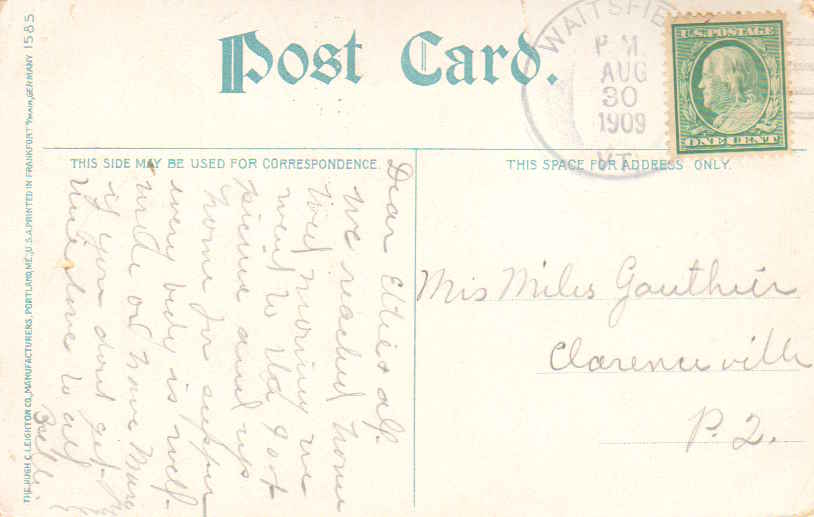 Post Card.
WAITSFIE
P.M.
AUG
30
1909
VT.
U.S. POSTAGE
ONE CENT
THIS SIDE MAY BE USED FOR CORRESPONDENCE.
THIS SPACE FOR ADDRESS ONLY.
Dear Ettie & all.
we reached home
Wed morning we
went to the 
picnic and
home for supper
every body is well.
write or have
if you dont get
love to all
Mrs Miles Gauthier
Clarenceville
P.2.
THE HUGH C. LEIGHTON CO., MANUFACTURERS, PORTLAND, ME., U.S.A. PRINTED IN FRANKFORT O/MAIN, GERMANY 1585